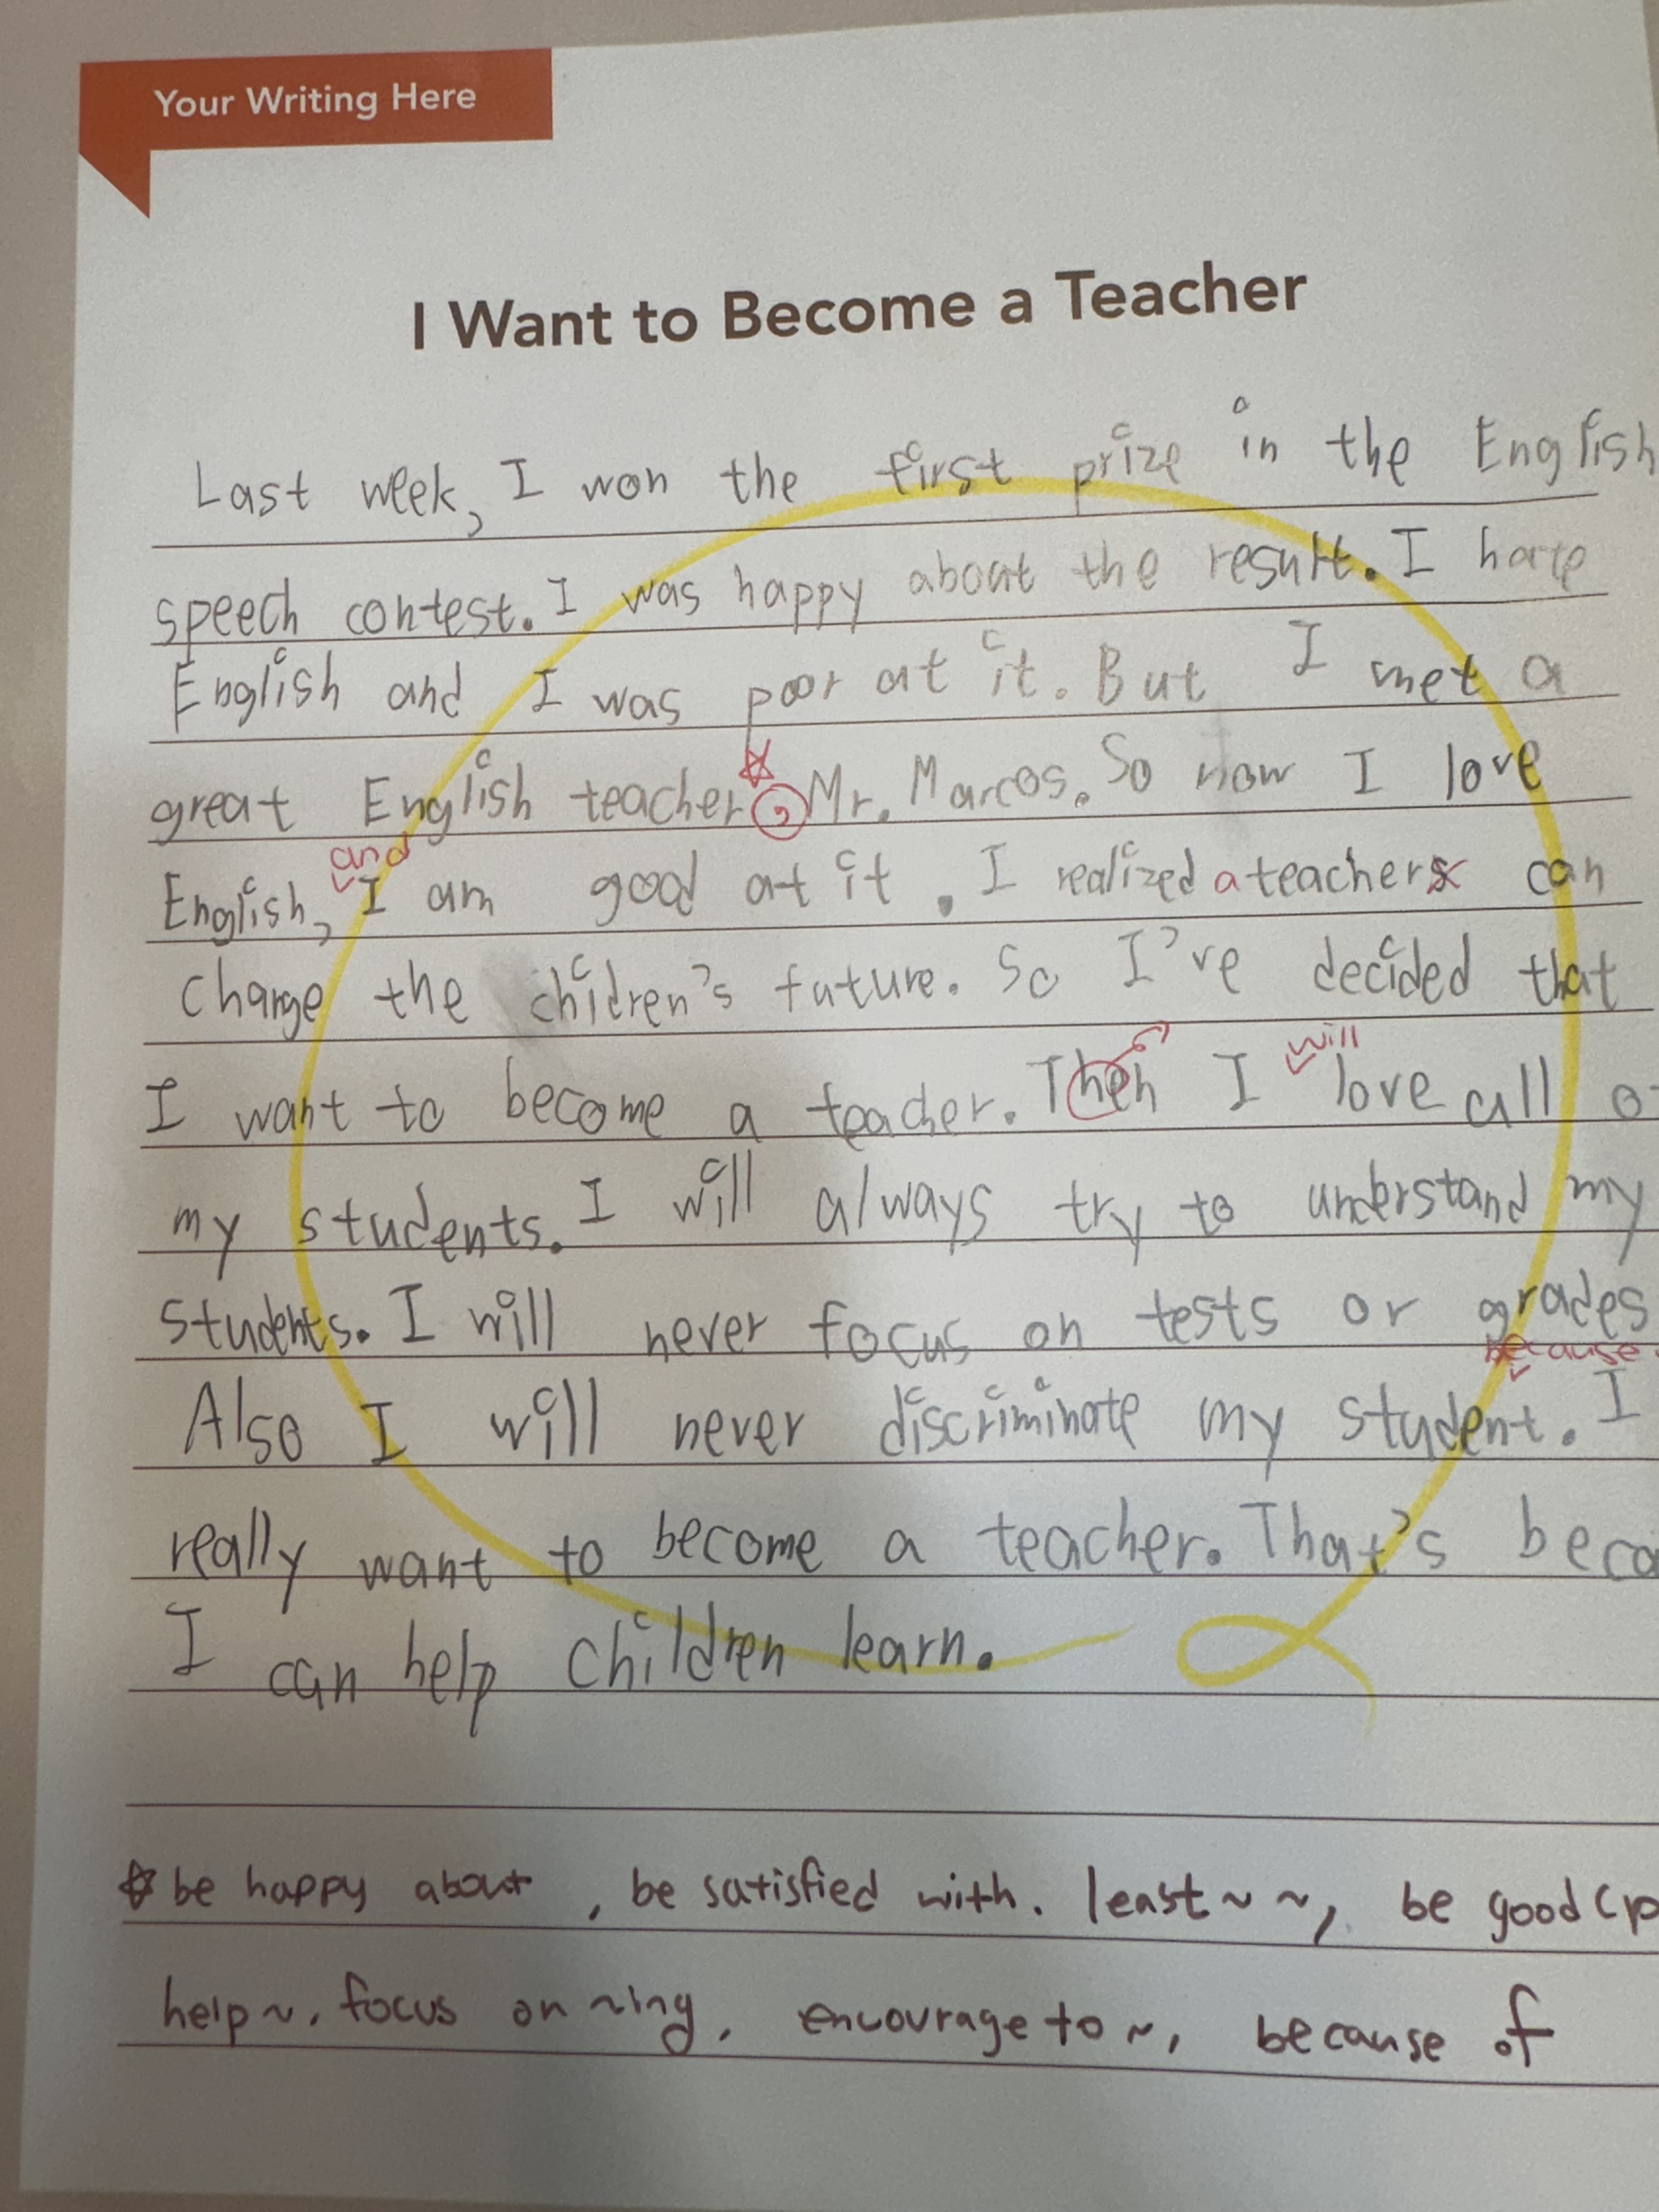 Your Writing Here
I Want to Become a Teacher
Last week, I won the first prize in the English
speech contest. I was happy about the result. I hate
English and I was poor at it. But I met a
great English teacher, Mr. Marcos. So now I love
and
English, I am good at it. I realized a teachers can
change the children's future. So I've decided that
will
I want to become a teacher. Then I love all
my students. I will always try to understand my
students. I will never focus on tests or grades
because
Also I will never discriminate my student. I
really want to become a teacher. That's
I can help children learn.
☆ be happy about, be satisfied with. least ~ ~, be good
help ~, focus on ~ing, encourage to ~, because of